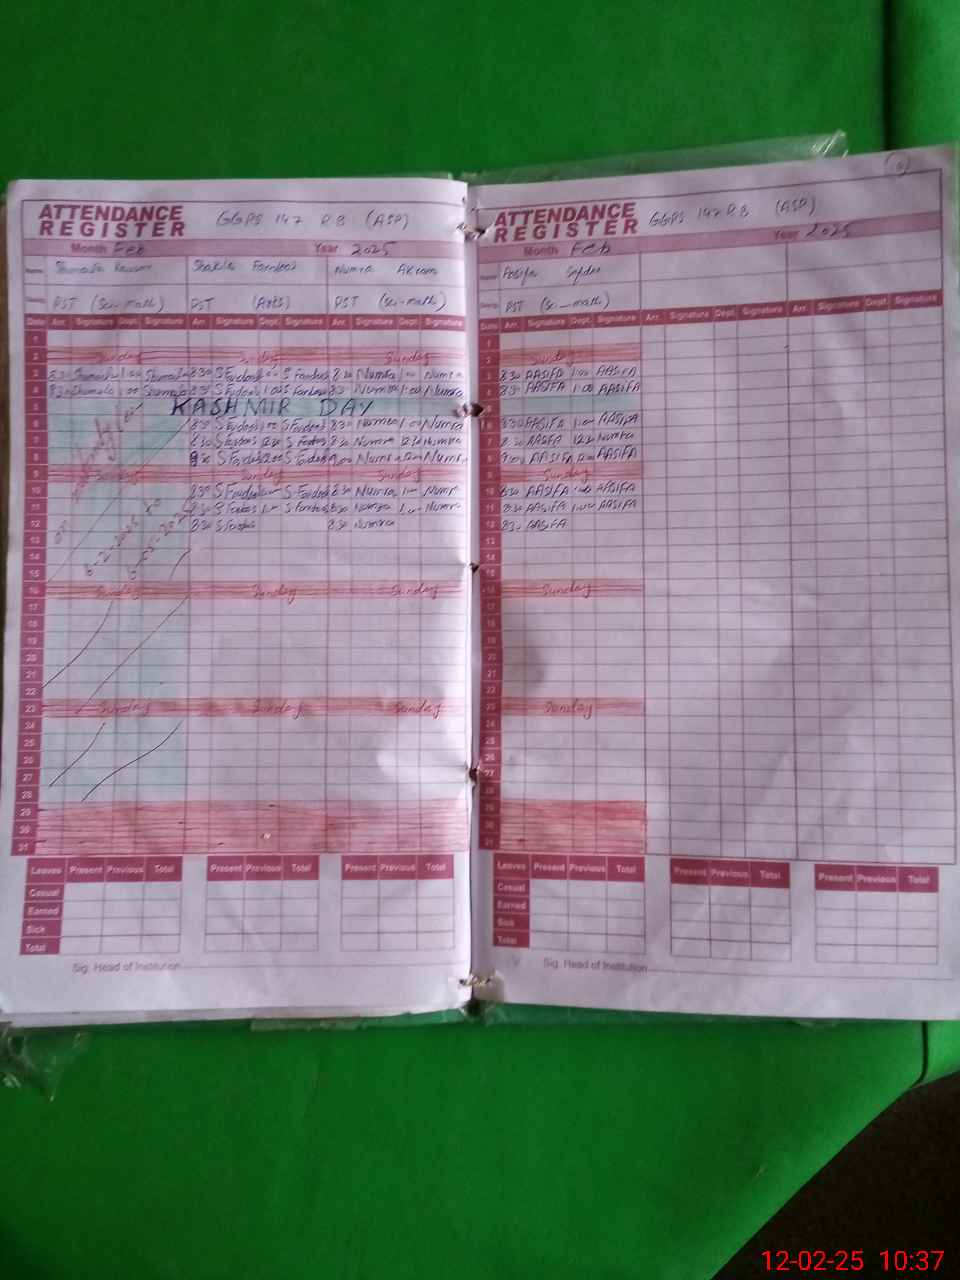 ATTENDANCE
REGISTER
GGPS 147 RB (ASP)
Month Feb Year 2025
Name Kausar Shakila Numra Akram
Desig. PST (Sci-math) PST (Arts) PST (Sci-math)
Date Arr. Signature Dept. Signature Arr. Signature Dept. Signature Arr. Signature Dept. Signature
1
2 Sunday Sunday Sunday
3 8:30 1:00 8:30 S Fardos S Fardos 8:30 Numra 1:00 Numra
4 8:30 1:00 8:30 S Fardos 1:00 S Fardos 8:30 Numra 1:00 Numra
5 KASHMIR DAY
6 8:30 S Fardos 1:00 S Fardos 8:30 Numra 1:00 Numra
7 8:30 S Fardos 12:30 S Fardos 8:30 Numra 12:30 Numra
8 S Fardos 12:00 S Fardos 9:00 Numra 12:00 Numra
9 Sunday Sunday Sunday
10 8:30 S Fardos 1:00 S Fardos 8:30 Numra 1:00 Numra
11 8:30 S Fardos 1:00 S Fardos 8:30 Numra 1:00 Numra
12 8:30 S Fardos 8:30 Numra
13
14
15
6-2-2025 to
16 Sunday Sunday Sunday
17
18
19
20
21
22
23 Sunday Sunday Sunday
24
25
26
27
28
29
30
31
Leaves Present Previous Total Present Previous Total Present Previous Total
Casual
Earned
Sick
Total
Sig. Head of Institution
ATTENDANCE
REGISTER
GGPS 147 RB (ASP)
Month Feb Year 2025
Name Safdar
Desig. PST (Sci-math)
Date Arr. Signature Dept. Signature Arr. Signature Dept. Signature Arr. Signature Dept. Signature
1
2 Sunday
3 8:30 AASIFA 1:00 AASIFA
4 8:30 AASIFA 1:00 AASIFA
5
6 8:30 AASIFA 1:00 AASIFA
7 8:30 AASIFA 12:30 Numra
8 9:00 AASIFA 12:00 AASIFA
9 Sunday
10 8:30 AASIFA 1:00 AASIFA
11 8:30 AASIFA 1:00 AASIFA
12 8:30 AASIFA
13
14
15
16 Sunday
17
18
19
20
21
22
23 Sunday
24
25
26
27
28
29
30
31
Leaves Present Previous Total Present Previous Total Present Previous Total
Casual
Earned
Sick
Total
Sig. Head of Institution
12-02-25 10:37